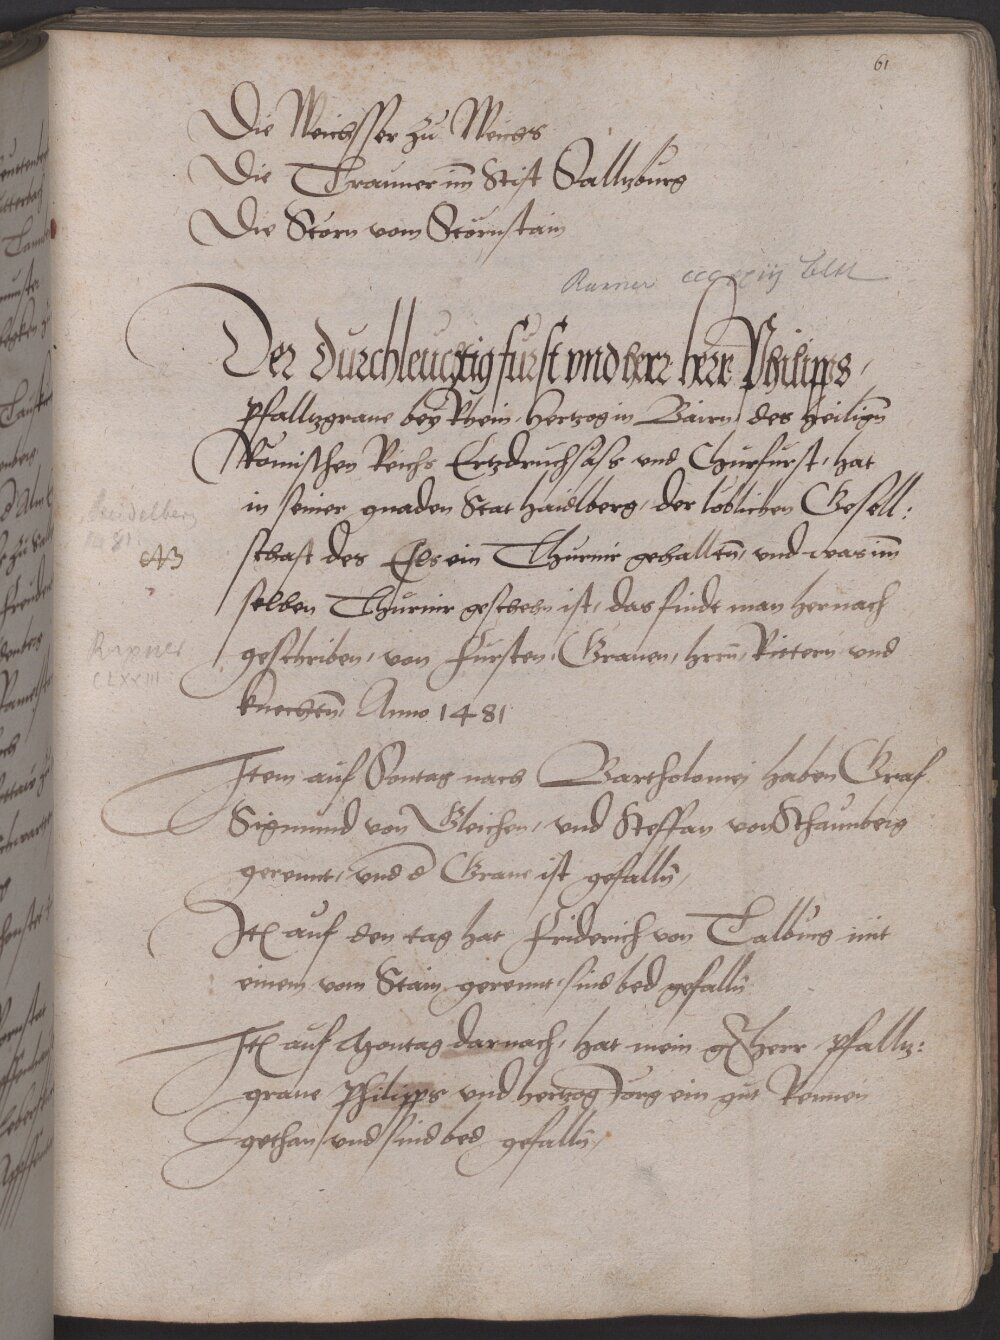 61
Die Weichsser zu Weichs
Die Trauner im̄ Stift Salltzburg
Die Störn vom Störnstain
Der durchleuchtig furst vnd herr herr Philipps,
Pfalltzgraue bey Rhein, Hertzog in Bairn, des heilign̄
Römischen Reichs Ertzdruchsäss vnd Churfurst, hat
in seiner gnaden Stat Haidlberg, der loblichen Gesell:
schaft des Esls ein Thurnir gehalltn̄, vnd was im̄
selben Thurnir geschehn ist, das findt man hernach
geschriben, von Fursten, Grauen, Herrn̄, Rittern vnd
Knechtn̄, Anno 1481
Heidelberg
1481
Rixner
CLXXIII
Item auf Sontag nach Bartholomei haben Graf
Sigmund von Gleichen, vnd Steffan von Schaunberg
gerennt, vnd d Graue ist gefalln̄,
Itē auf den tag hat Friderich von Talburg mit
einem vom Stain gerennt, sind bed gefalln̄
Itē auf Montag darnach, hat mein g Herr Pfalltz:
graue Philipps vnd Hertzog Jorg ein gut Rennen
gethan, vnd sind bed gefalln̄,